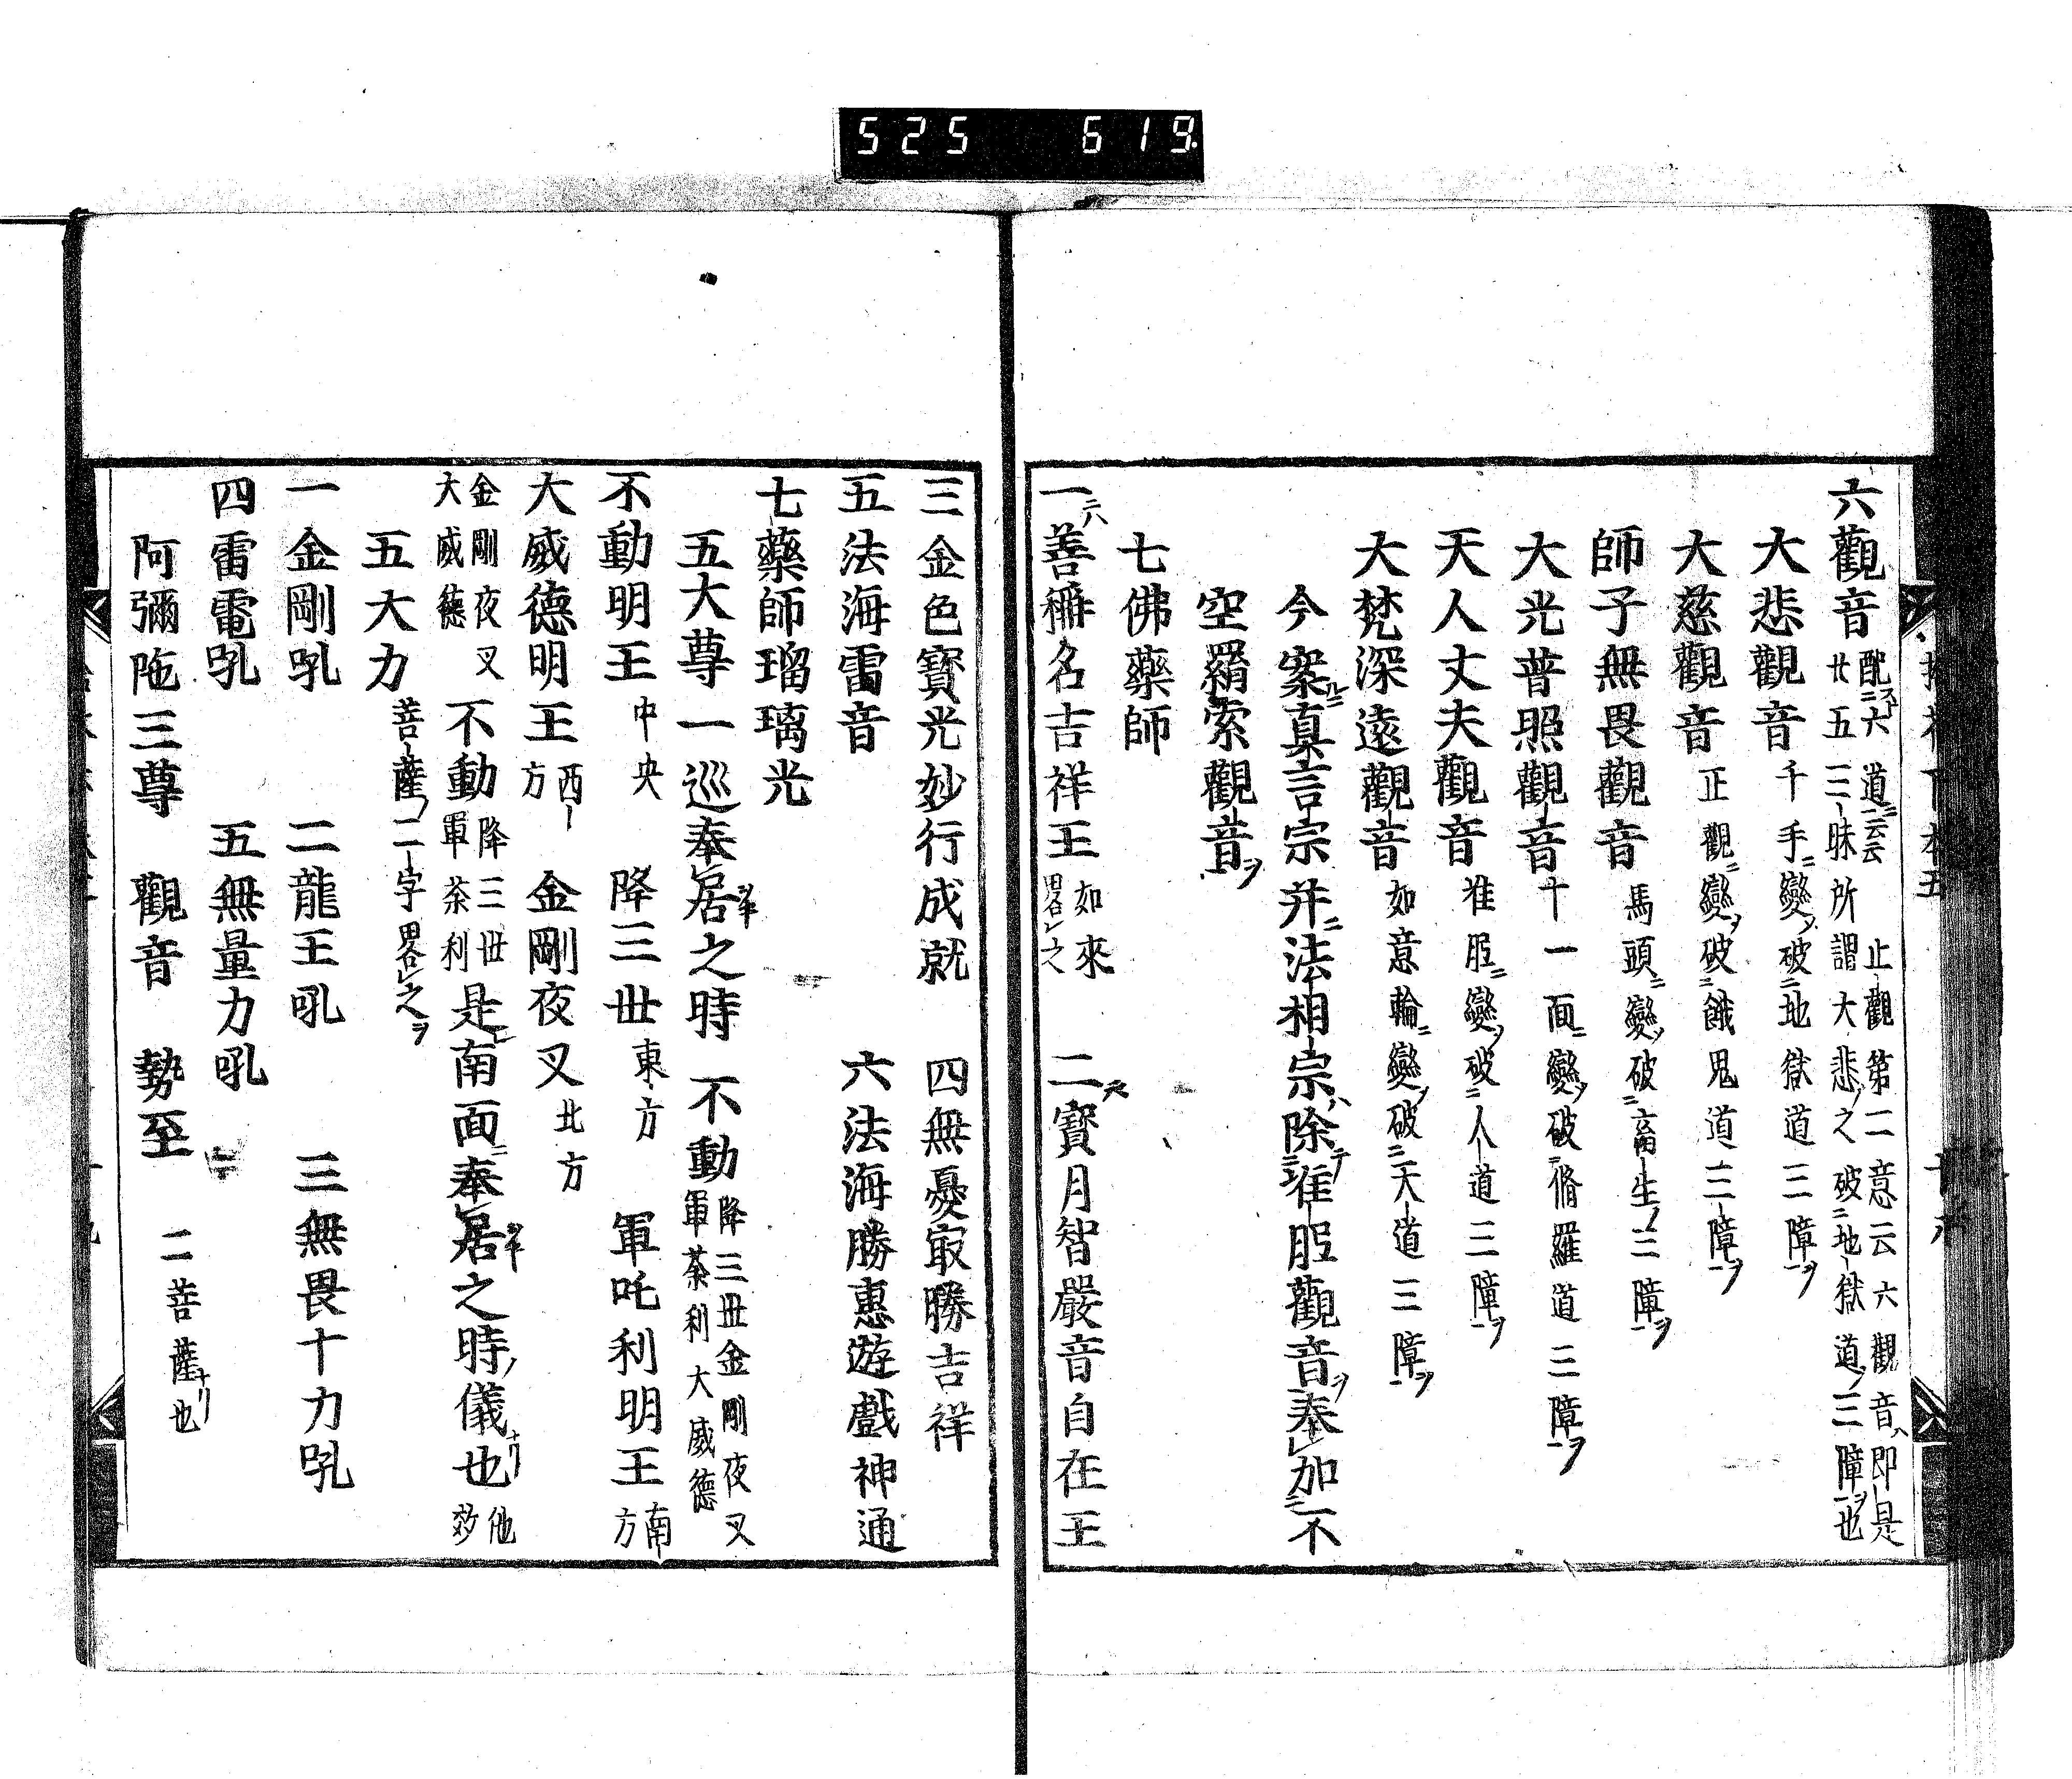 525 619
六觀音 配六道云云 止觀第二意云六觀音即是
廿五三昧所謂大悲之破地獄道三障也
大悲觀音 千手變破地獄道三障
大慈觀音 正觀變破餓鬼道三障
師子無畏觀音 馬頭變破畜生三障
大光普照觀音 十一面變破脩羅道三障
天人丈夫觀音 准胝變破人道三障
大梵深遠觀音 如意輪變破天道三障
今案真言宗并法相宗除准胝觀音奉加不
空羂索觀音
七佛藥師
一善稱名吉祥王 如來畧之 二寶月智嚴音自在王
三金色寶光妙行成就 四無憂㝡勝吉祥
五法海雷音 六法海勝惠遊戲神通
七藥師瑠璃光
五大尊一巡奉居之時 不動 降三世金剛夜叉
軍荼利大威德
不動明王 中央 降三世 東方 軍吒利明王 南方
大威德明王 西方 金剛夜叉 北方
金剛夜叉
大威德 不動 降三世
軍荼利 是南面奉居之時儀也 他
五大力 菩薩二字畧之
一金剛吼 二龍王吼 三無畏十力吼
四雷電吼 五無量力吼
阿彌陁三尊 觀音 勢至 二菩薩也